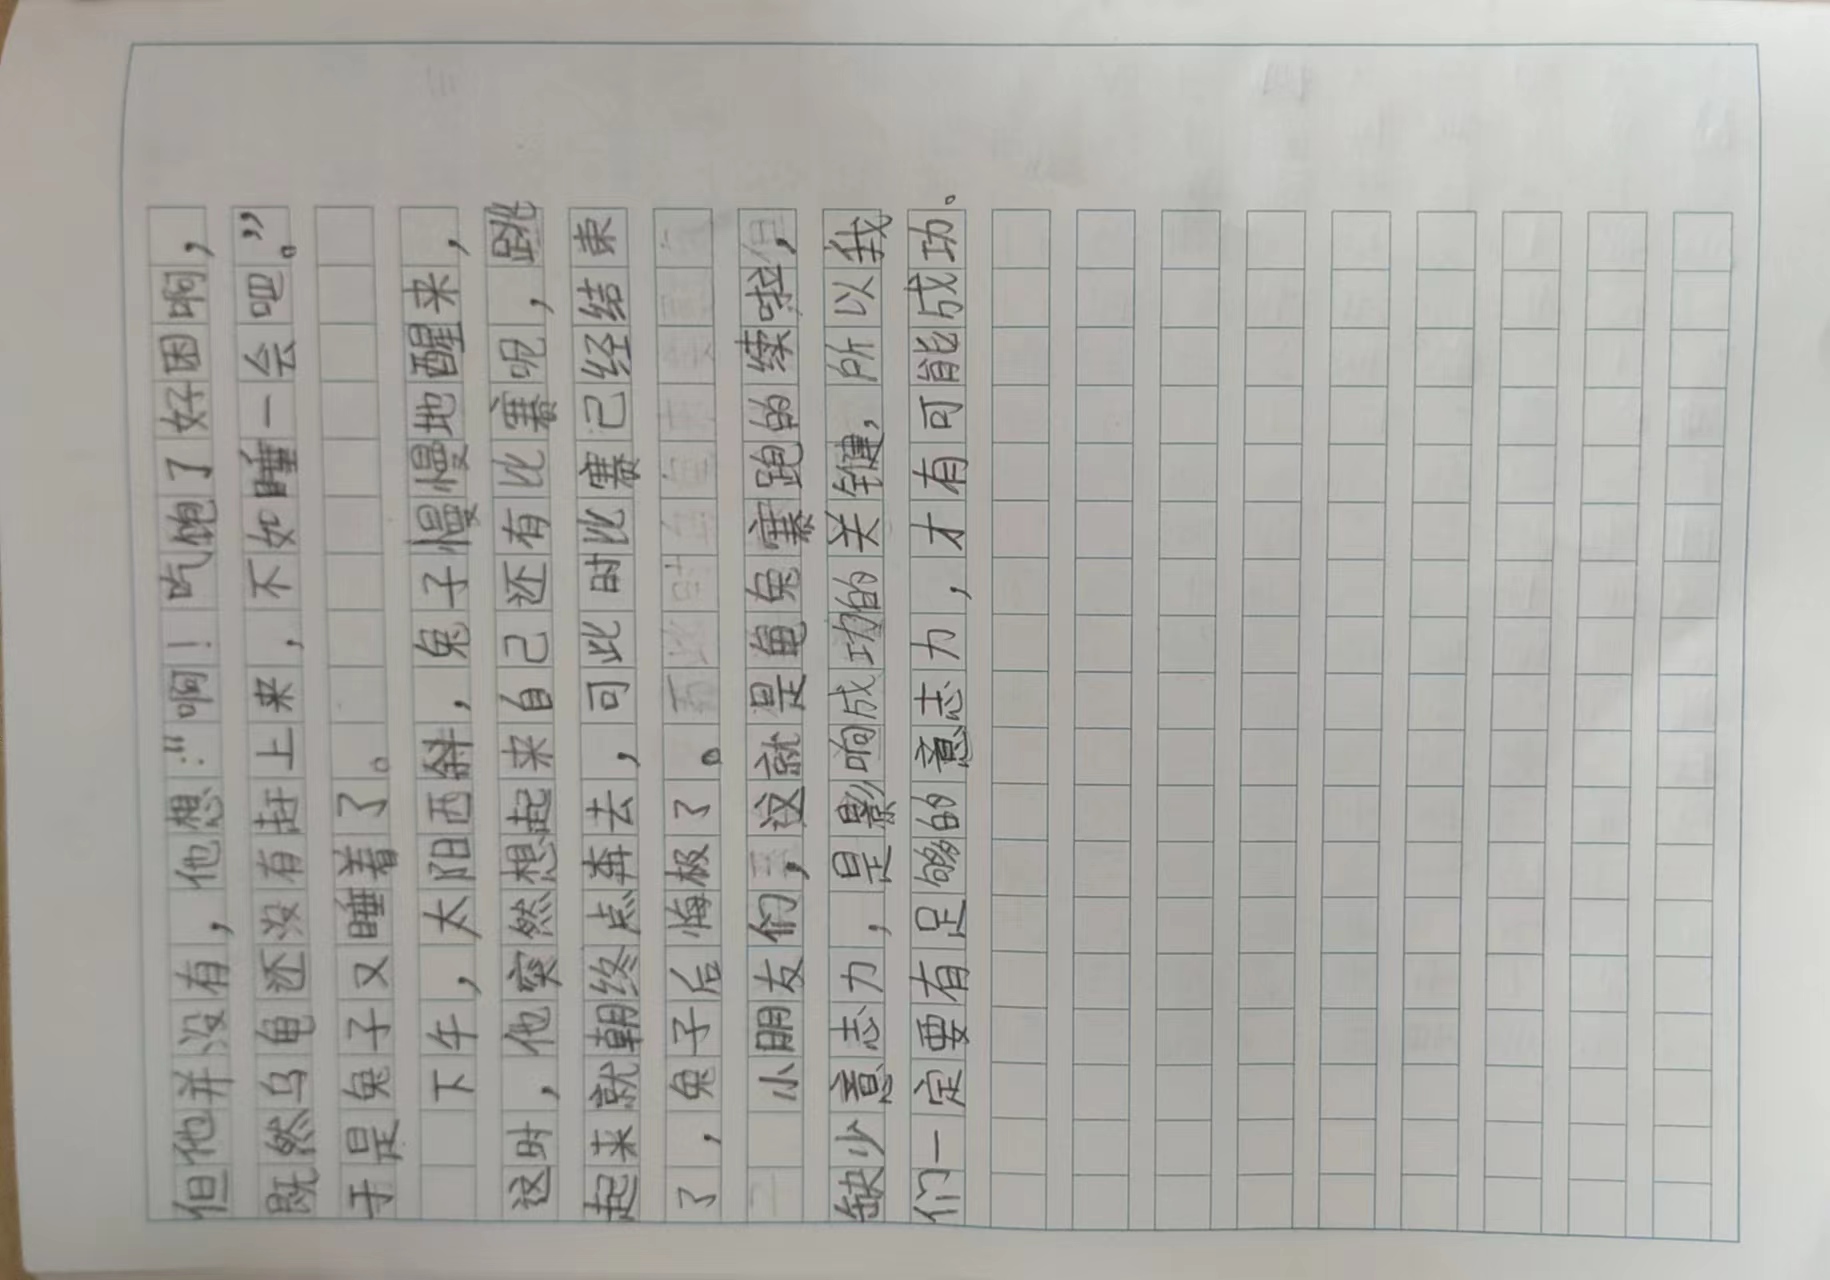 但他并没有，他想：“啊！吃饱了好困啊，
既然乌龟还没有赶上来，不如睡一会吧。”
于是兔子又睡着了。
下午，太阳西斜，兔子慢慢地醒来，
这时，他突然想起来自己还有比赛呢，跳
起来就朝终点奔去，可此时比赛已经结束
了，兔子后悔极了。
小朋友们，这就是龟兔赛跑的续啦，
缺少意志力，是影响成功的关键，所以我
们一定要有足够的意志力，才有可能成功。